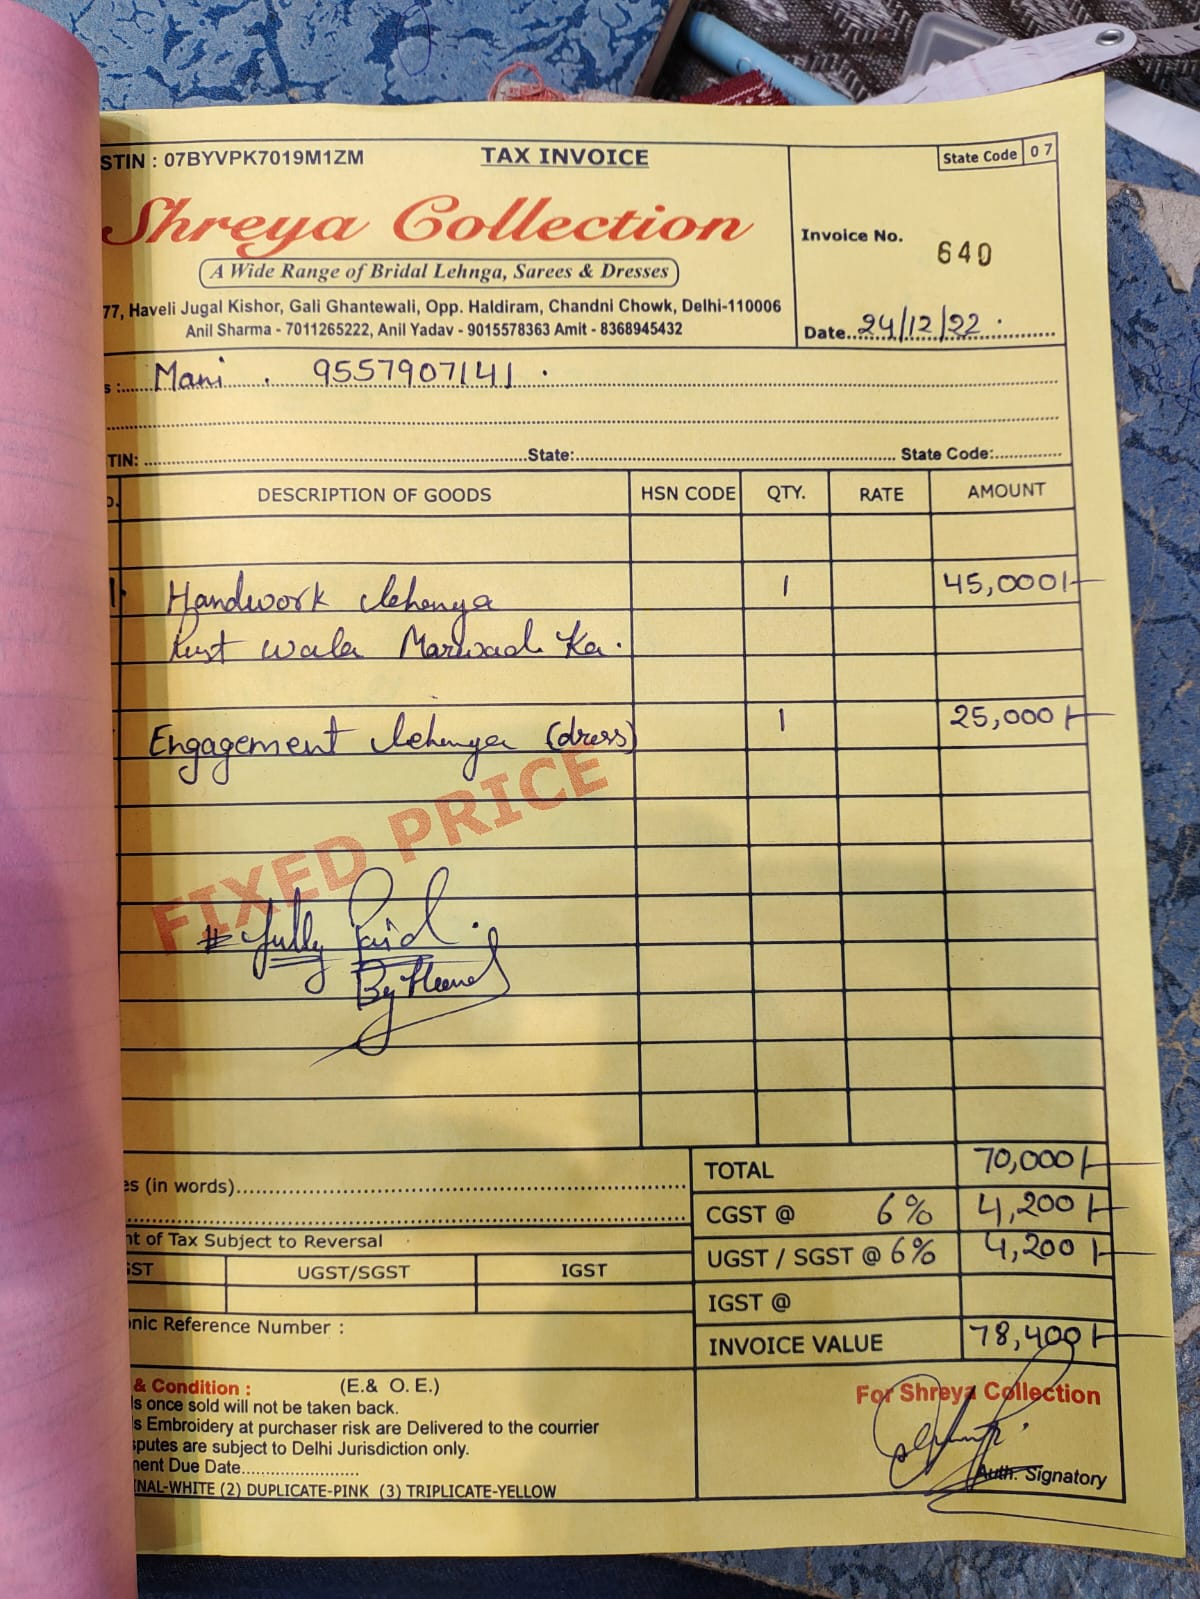 STIN : 07BYVPK7019M1ZM
TAX INVOICE
State Code 0 7
Shreya Collection
A Wide Range of Bridal Lehnga, Sarees & Dresses
77, Haveli Jugal Kishor, Gali Ghantewali, Opp. Haldiram, Chandni Chowk, Delhi-110006
Anil Sharma - 7011265222, Anil Yadav - 9015578363 Amit - 8368945432
Invoice No. 640
Date..24/12/22.
s :.....Mani . 9557907141 .
TIN: ..........State:.......... State Code:..........
DESCRIPTION OF GOODS HSN CODE QTY. RATE AMOUNT
1. Handwork lehenga 1 45,000/-
wala Marwadi Ka.
Engagement lehenga (dress) 1 25,000/-
FIXED PRICE
# fully Paid.
By
TOTAL 70,000/-
es (in words)..........
CGST @ 6% 4,200/-
nt of Tax Subject to Reversal
UGST / SGST @ 6% 4,200/-
GST UGST/SGST IGST
IGST @
onic Reference Number :
INVOICE VALUE 78,400/-
& Condition : (E.& O.E.)
s once sold will not be taken back.
s Embroidery at purchaser risk are Delivered to the courrier
sputes are subject to Delhi Jurisdiction only.
ment Due Date..........
NAL-WHITE (2) DUPLICATE-PINK (3) TRIPLICATE-YELLOW
For Shreya Collection
Auth. Signatory